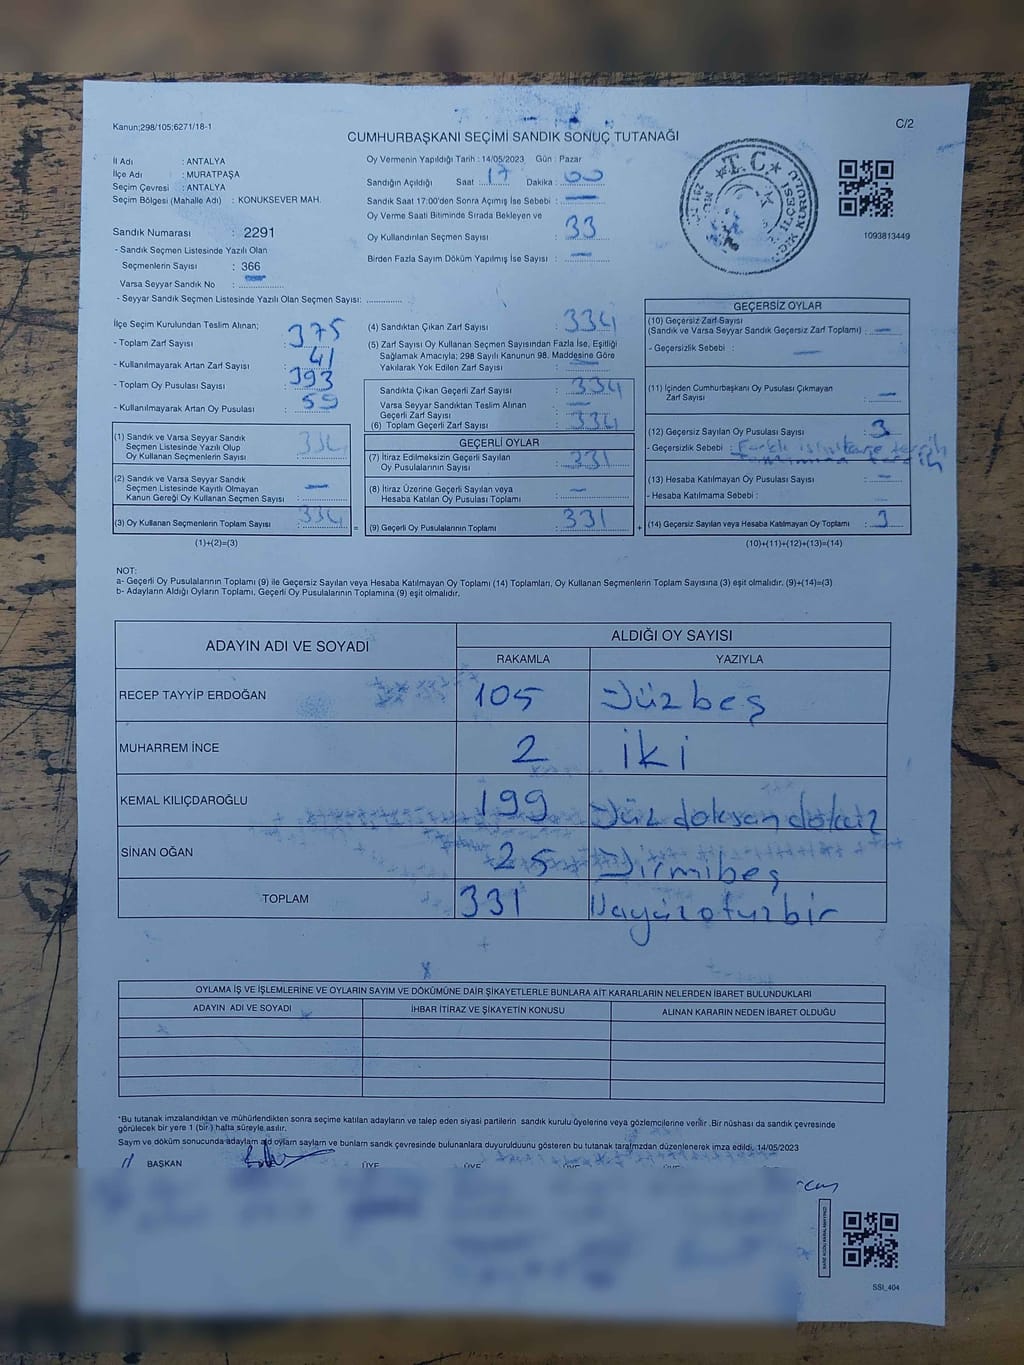 Kanun;298/105;6271/18-1
C/2
CUMHURBAŞKANI SEÇİMİ SANDIK SONUÇ TUTANAĞI
İl Adı : ANTALYA
İlçe Adı : MURATPAŞA
Seçim Çevresi : ANTALYA
Seçim Bölgesi (Mahalle Adı) : KONUKSEVER MAH.
Sandık Numarası : 2291
- Sandık Seçmen Listesinde Yazılı Olan
Seçmenlerin Sayısı : 366
Varsa Seyyar Sandık No : —
- Seyyar Sandık Seçmen Listesinde Yazılı Olan Seçmen Sayısı: ............
Oy Vermenin Yapıldığı Tarih : 14/05/2023 Gün : Pazar
Sandığın Açıldığı Saat 17 Dakika : 00
Sandık Saat 17:00'den Sonra Açımış İse Sebebi : —
Oy Verme Saati Bitiminde Sırada Bekleyen ve
Oy Kullandırılan Seçmen Sayısı : 33
Birden Fazla Sayım Döküm Yapılmış İse Sayısı : —
T.C.
1093813449
İlçe Seçim Kurulundan Teslim Alınan;
- Toplam Zarf Sayısı : 375
- Kullanılmayarak Artan Zarf Sayısı : 41
- Toplam Oy Pusulası Sayısı : 393
- Kullanılmayarak Artan Oy Pusulası : 59
(1) Sandık ve Varsa Seyyar Sandık
Seçmen Listesinde Yazılı Olup
Oy Kullanan Seçmenlerin Sayısı : 334
(2) Sandık ve Varsa Seyyar Sandık
Seçmen Listesinde Kayıtlı Olmayan
Kanun Gereği Oy Kullanan Seçmen Sayısı : —
(3) Oy Kullanan Seçmenlerin Toplam Sayısı : 334
(1)+(2)=(3)
=
(4) Sandıktan Çıkan Zarf Sayısı : 334
(5) Zarf Sayısı Oy Kullanan Seçmen Sayısından Fazla İse, Eşitliği
Sağlamak Amacıyla; 298 Sayılı Kanunun 98. Maddesine Göre
Yakılarak Yok Edilen Zarf Sayısı : —
Sandıkta Çıkan Geçerli Zarf Sayısı : 334
Varsa Seyyar Sandıktan Teslim Alınan
Geçerli Zarf Sayısı : —
(6) Toplam Geçerli Zarf Sayısı : 334
GEÇERLİ OYLAR
(7) İtiraz Edilmeksizin Geçerli Sayılan
Oy Pusulalarının Sayısı : 331
(8) İtiraz Üzerine Geçerli Sayılan veya
Hesaba Katılan Oy Pusulası Toplamı : —
(9) Geçerli Oy Pusulalarının Toplamı : 331
+
GEÇERSİZ OYLAR
(10) Geçersiz Zarf Sayısı
(Sandık ve Varsa Seyyar Sandık Geçersiz Zarf Toplamı) : —
- Geçersizlik Sebebi : —
(11) İçinden Cumhurbaşkanı Oy Pusulası Çıkmayan
Zarf Sayısı : —
(12) Geçersiz Sayılan Oy Pusulası Sayısı : 3
- Geçersizlik Sebebi : Farklı tercih
(13) Hesaba Katılmayan Oy Pusulası Sayısı : —
- Hesaba Katılmama Sebebi :
(14) Geçersiz Sayılan veya Hesaba Katılmayan Oy Toplamı : 3
(10)+(11)+(12)+(13)=(14)
NOT:
a- Geçerli Oy Pusulalarının Toplamı (9) ile Geçersiz Sayılan veya Hesaba Katılmayan Oy Toplamı (14) Toplamları, Oy Kullanan Seçmenlerin Toplam Sayısına (3) eşit olmalıdır. (9)+(14)=(3)
b- Adayların Aldığı Oyların Toplamı, Geçerli Oy Pusulalarının Toplamına (9) eşit olmalıdır.
ADAYIN ADI VE SOYADI
ALDIĞI OY SAYISI
RAKAMLA YAZIYLA
RECEP TAYYİP ERDOĞAN 105 Yüzbeş
MUHARREM İNCE 2 iki
KEMAL KILIÇDAROĞLU 199 Yüz doksan dokuz
SİNAN OĞAN 25 Yirmibeş
TOPLAM 331 Üçyüzotuzbir
OYLAMA İŞ VE İŞLEMLERİNE VE OYLARIN SAYIM VE DÖKÜMÜNE DAİR ŞİKAYETLERLE BUNLARA AİT KARARLARIN NELERDEN İBARET BULUNDUKLARI
ADAYIN ADI VE SOYADI İHBAR İTİRAZ VE ŞİKAYETİN KONUSU ALINAN KARARIN NEDEN İBARET OLDUĞU
*Bu tutanak imzalandıktan ve mühürlendikten sonra seçime katılan adayların ve talep eden siyasi partilerin sandık kurulu üyelerine veya gözlemcilerine verilir .Bir nüshası da sandık çevresinde
görülecek bir yere 1 (bir) hafta süreyle asılır.
Sayım ve döküm sonucunda adayların aldığı oyların sayıları ve bunların sandık çevresinde bulunanlara duyurulduunu gösteren bu tutanak tarafımızdan düzenlenerek imza edildi. 14/05/2023
BAŞKAN ÜYE ÜYE ÜYE ÜYE
SSI_404